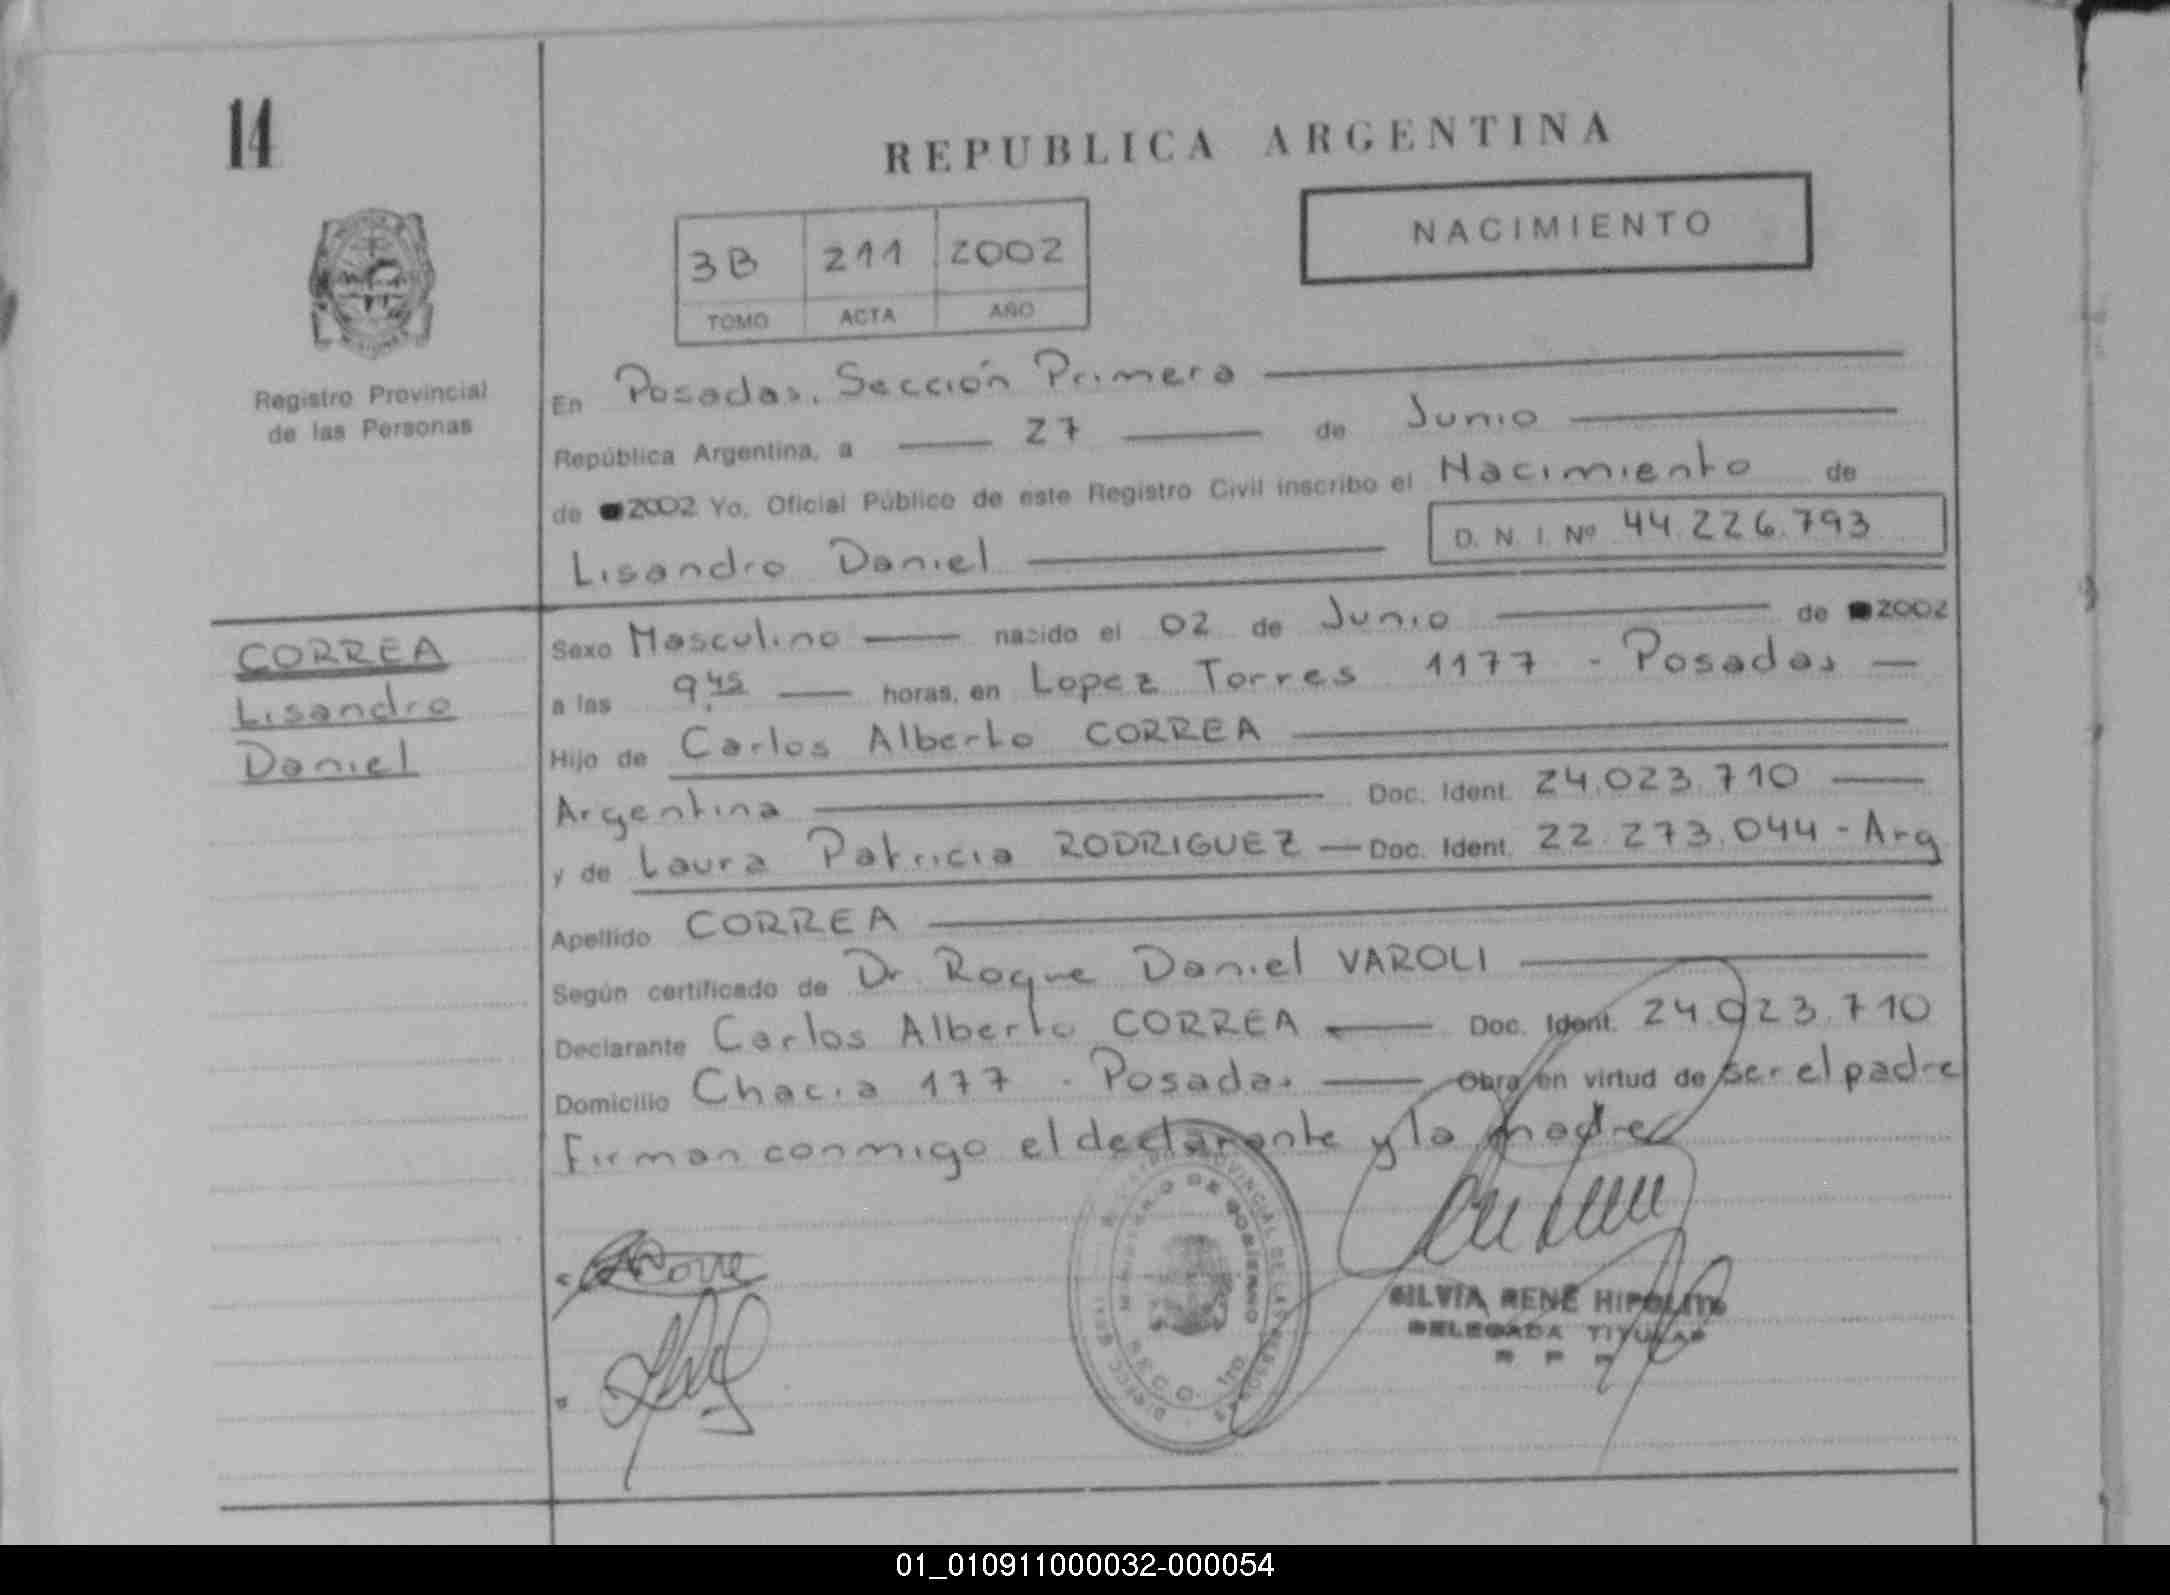 14
REPUBLICA ARGENTINA
NACIMIENTO
3B 211 2002
TOMO ACTA AÑO
Registro Provincial
de las Personas
En Posadas, Sección Primera
República Argentina, a 27 de Junio
de 2002 Yo, Oficial Público de este Registro Civil inscribo el Nacimiento de
Lisandro Daniel D. N. I. Nº 44.226.793
CORREA
Lisandro
Daniel
Sexo Masculino nacido el 02 de Junio de 2002
a las 9,45 horas, en Lopez Torres 1177 - Posadas
Hijo de Carlos Alberto CORREA
Argentina Doc. Ident. 24.023.710
y de Laura Patricia RODRIGUEZ Doc. Ident. 22.273.044 - Arg
Apellido CORREA
Según certificado de Dr Roque Daniel VAROLI
Declarante Carlos Alberto CORREA Doc. Ident. 24.023.710
Domicilio 177 - Posadas Obra en virtud de ser el padre
Firman conmigo el declarante y la madre
MINISTERIO DE GOBIERNO
SILVIA RENÉ HIPOLITO
DELEGADA TITULAR
01_010911000032-000054